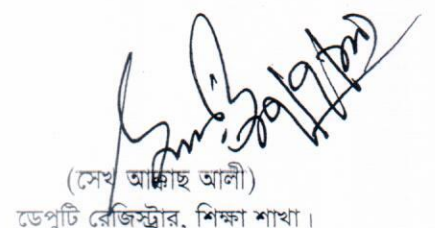 (সেখ আক্কাছ আলী)
ডেপুটি রেজিস্ট্রার, শিক্ষা শাখা।